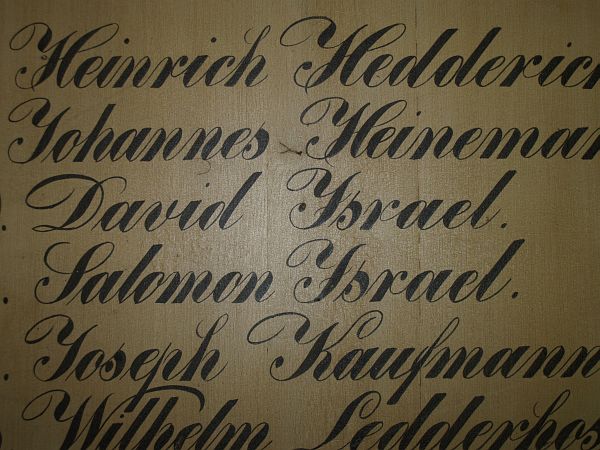 Heinrich Hedderich
Johannes Heineman
. David Israel.
. Salomon Israel.
. Joseph Kaufmann
Wilhelm Ledderhos